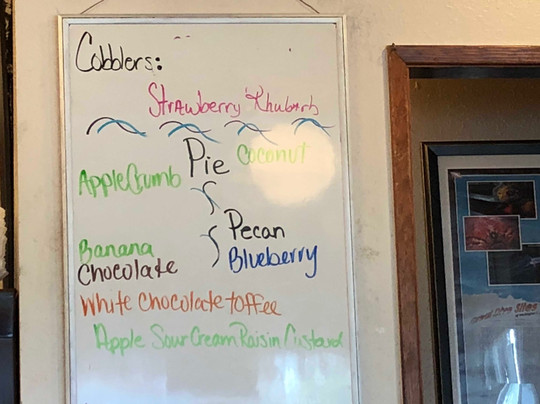 Cobblers:
Strawberry Rhubarb
Pie
Coconut
Apple Crumb
Pecan
Banana
Blueberry
Chocolate
White Chocolate toffee
Apple Sour Cream Raisin Custard
Dive Sites